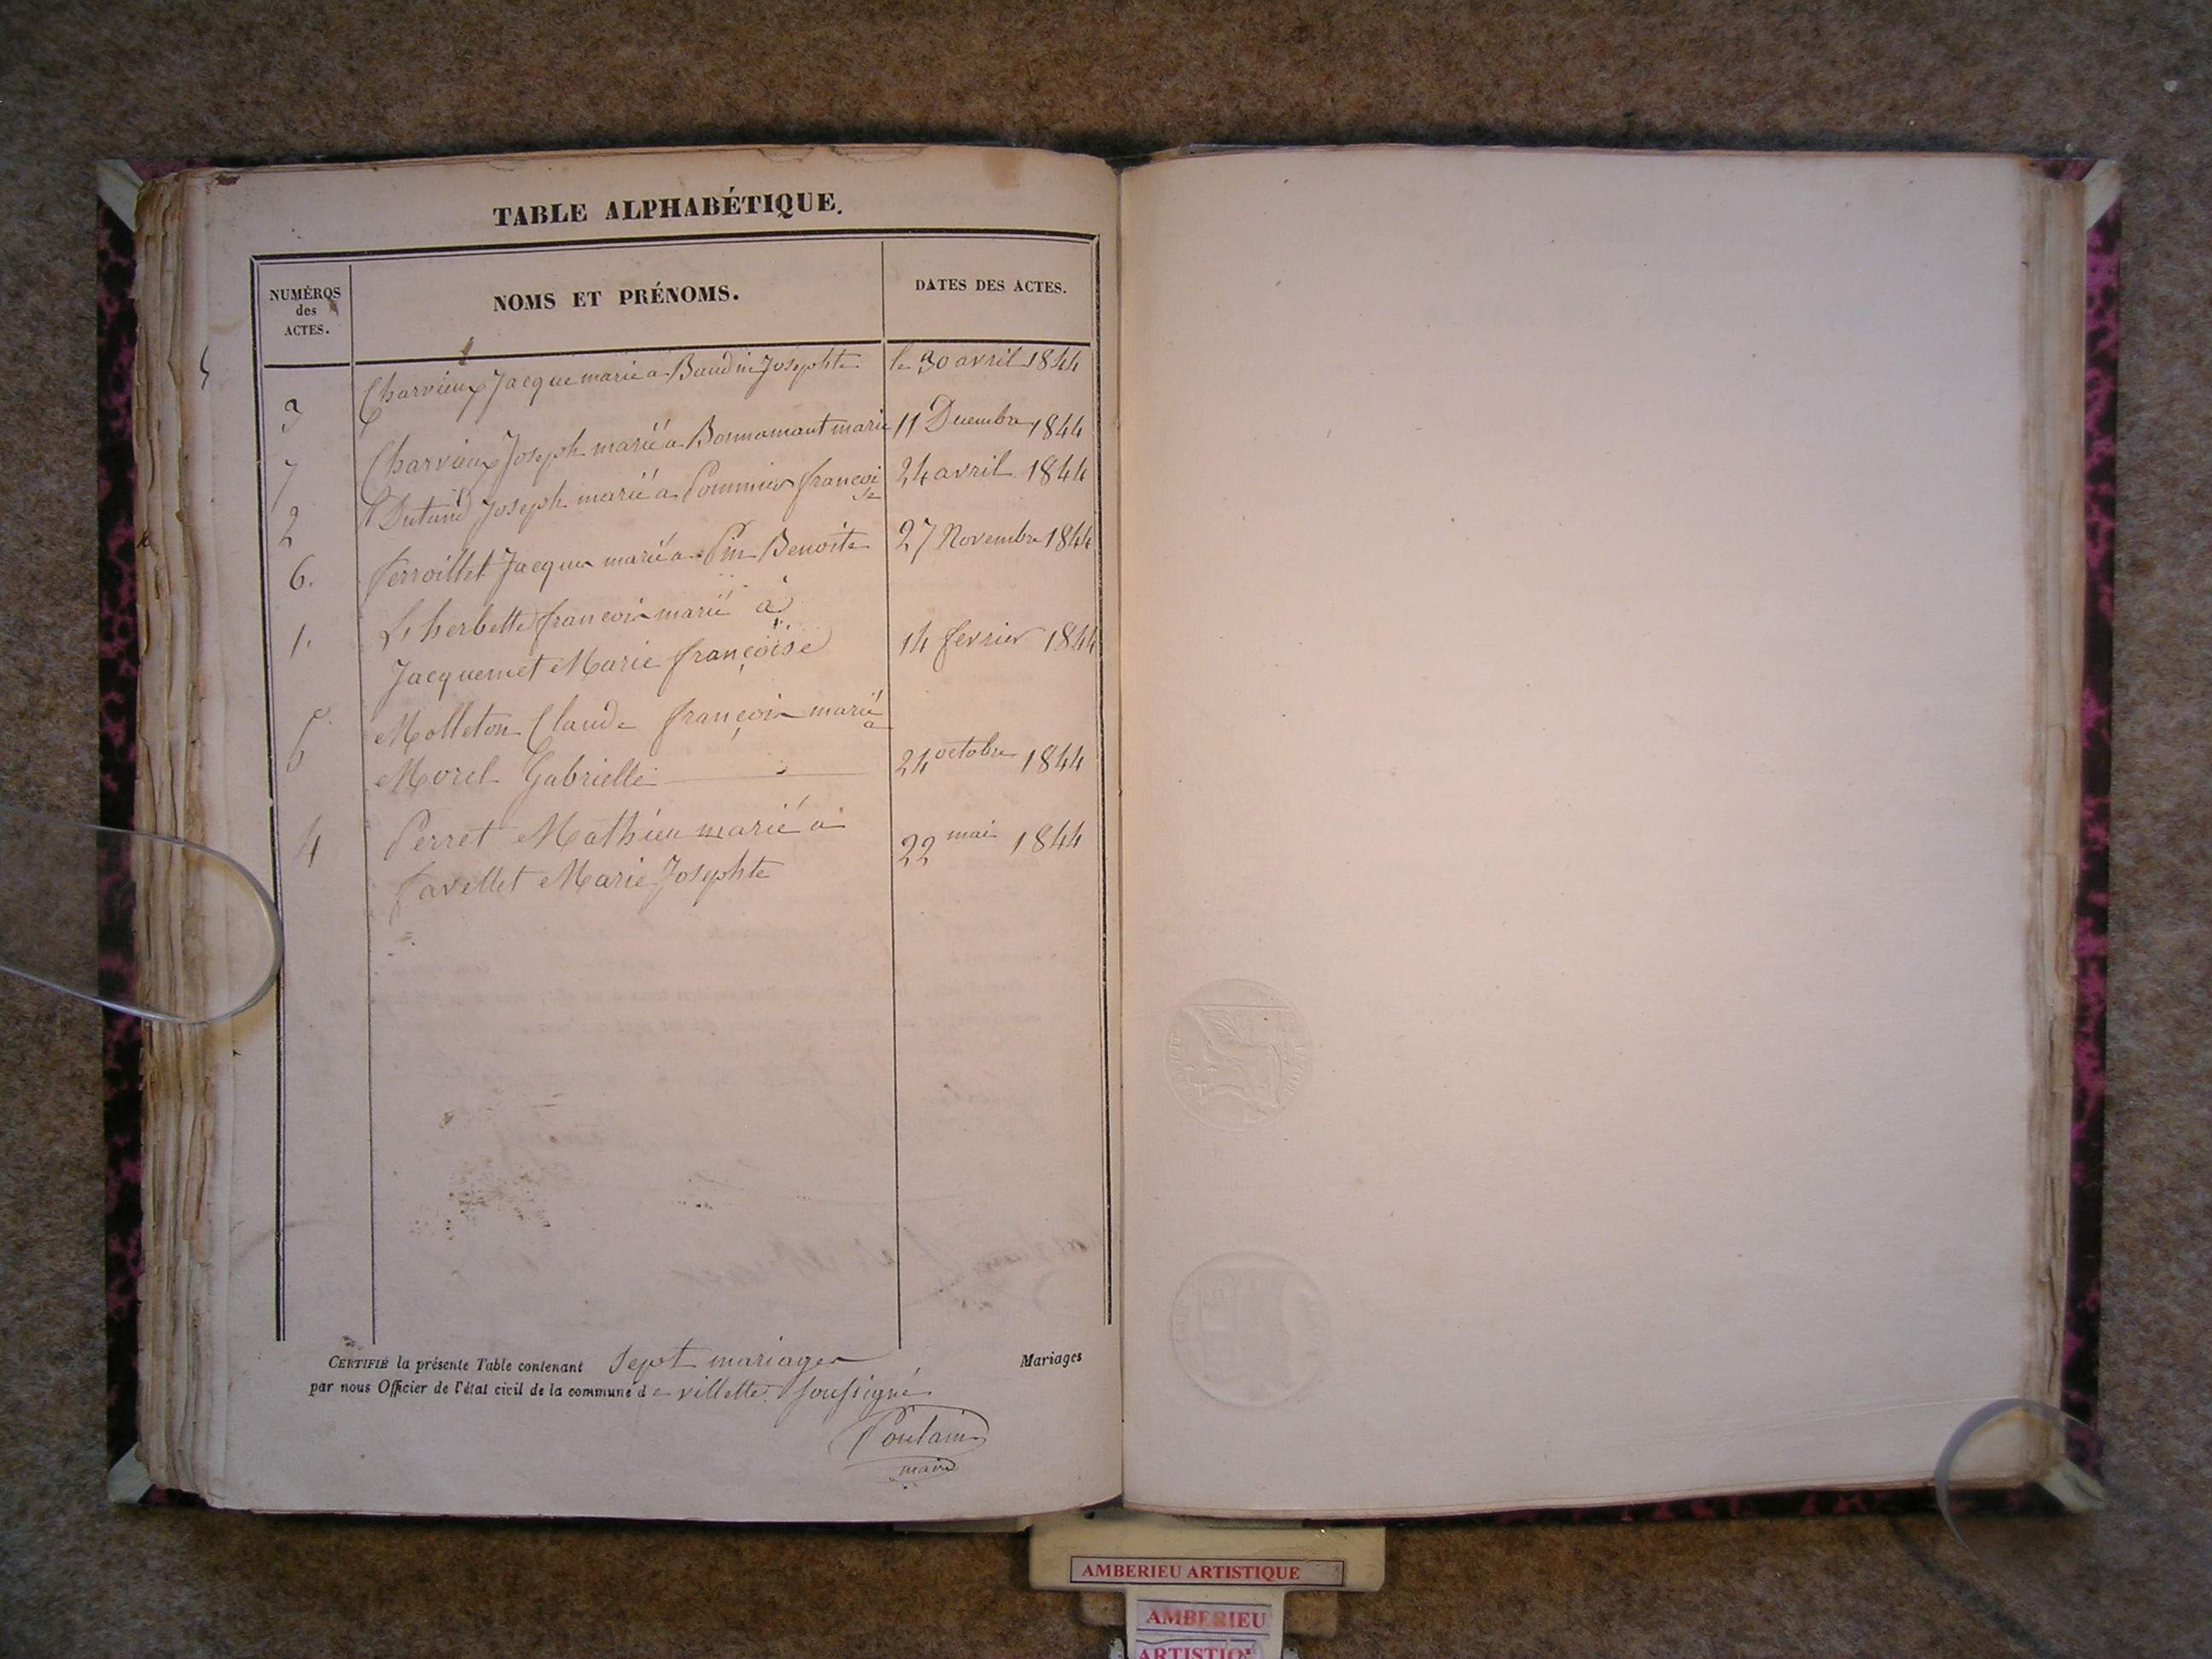 TABLE ALPHABÉTIQUE.
NUMÉROS des ACTES.
NOMS ET PRÉNOMS.
DATES DES ACTES.
3 Charvieux Jacque marié a Baudin Josephte le 30 avril 1844
7 Charvieux Joseph marié a Bonnamant marie 11 Decembre 1844
2 Joseph marié a Pommier françoise 24 avril 1844
6. Ferroillet Jacques marié a Pin Benoite 27 Novembre 1844
1. Lherbette françois marié à
Jacquemet Marie françoise 14 fevrier 1844
5 Molleton Claude françois marié a
Morel Gabrielle 24 octobre 1844
4 Perret Mathieu marié à 22 mai 1844
favellet Marie Josephte
CERTIFIÉ la présente Table contenant Sept mariages Mariages
par nous Officier de l'état civil de la commune de villette soussigné
maire
AMBERIEU ARTISTIQUE
AMBERIEU
ARTISTIQU